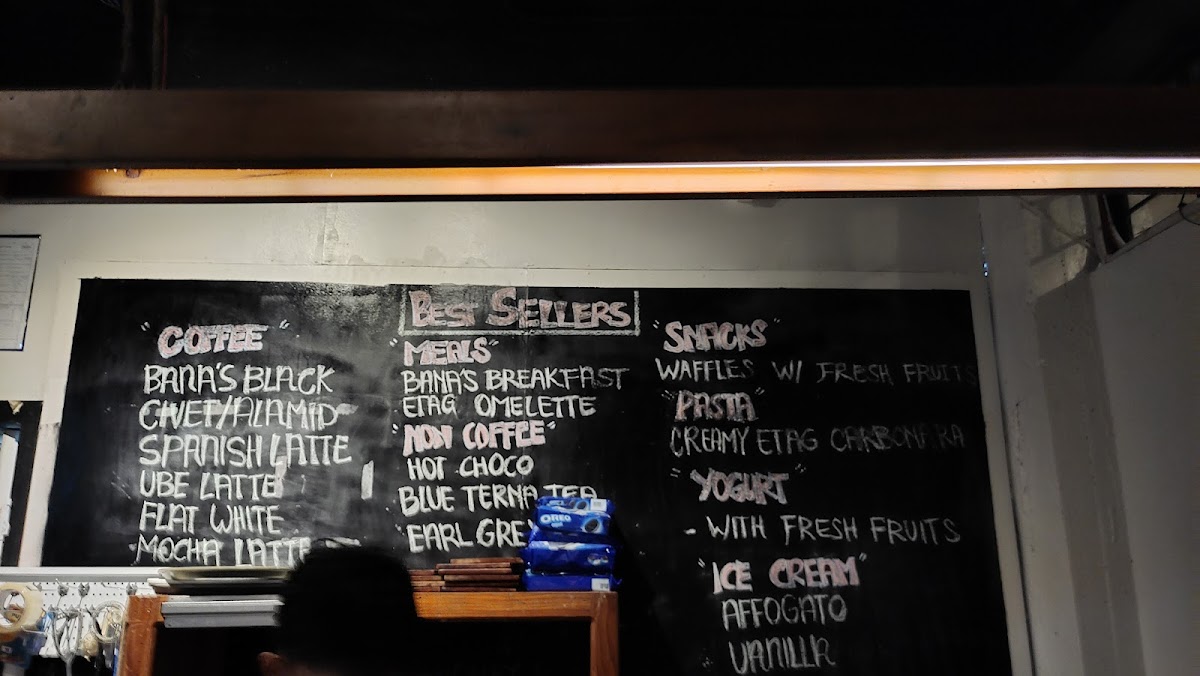 BEST SELLERS
"COFFEE"
BANA'S BLACK
CIVET/ALAMID
SPANISH LATTE
UBE LATTE
FLAT WHITE
MOCHA LATTE
"MEALS"
BANA'S BREAKFAST
ETAG OMELETTE
"NON COFFEE"
HOT CHOCO
BLUE TERNA TEA
EARL GREY
"SNACKS"
WAFFLES W/ FRESH FRUITS
"PASTA"
CREAMY ETAG CARBONARA
"YOGURT"
- WITH FRESH FRUITS
"ICE CREAM"
AFFOGATO
VANILLA
OREO